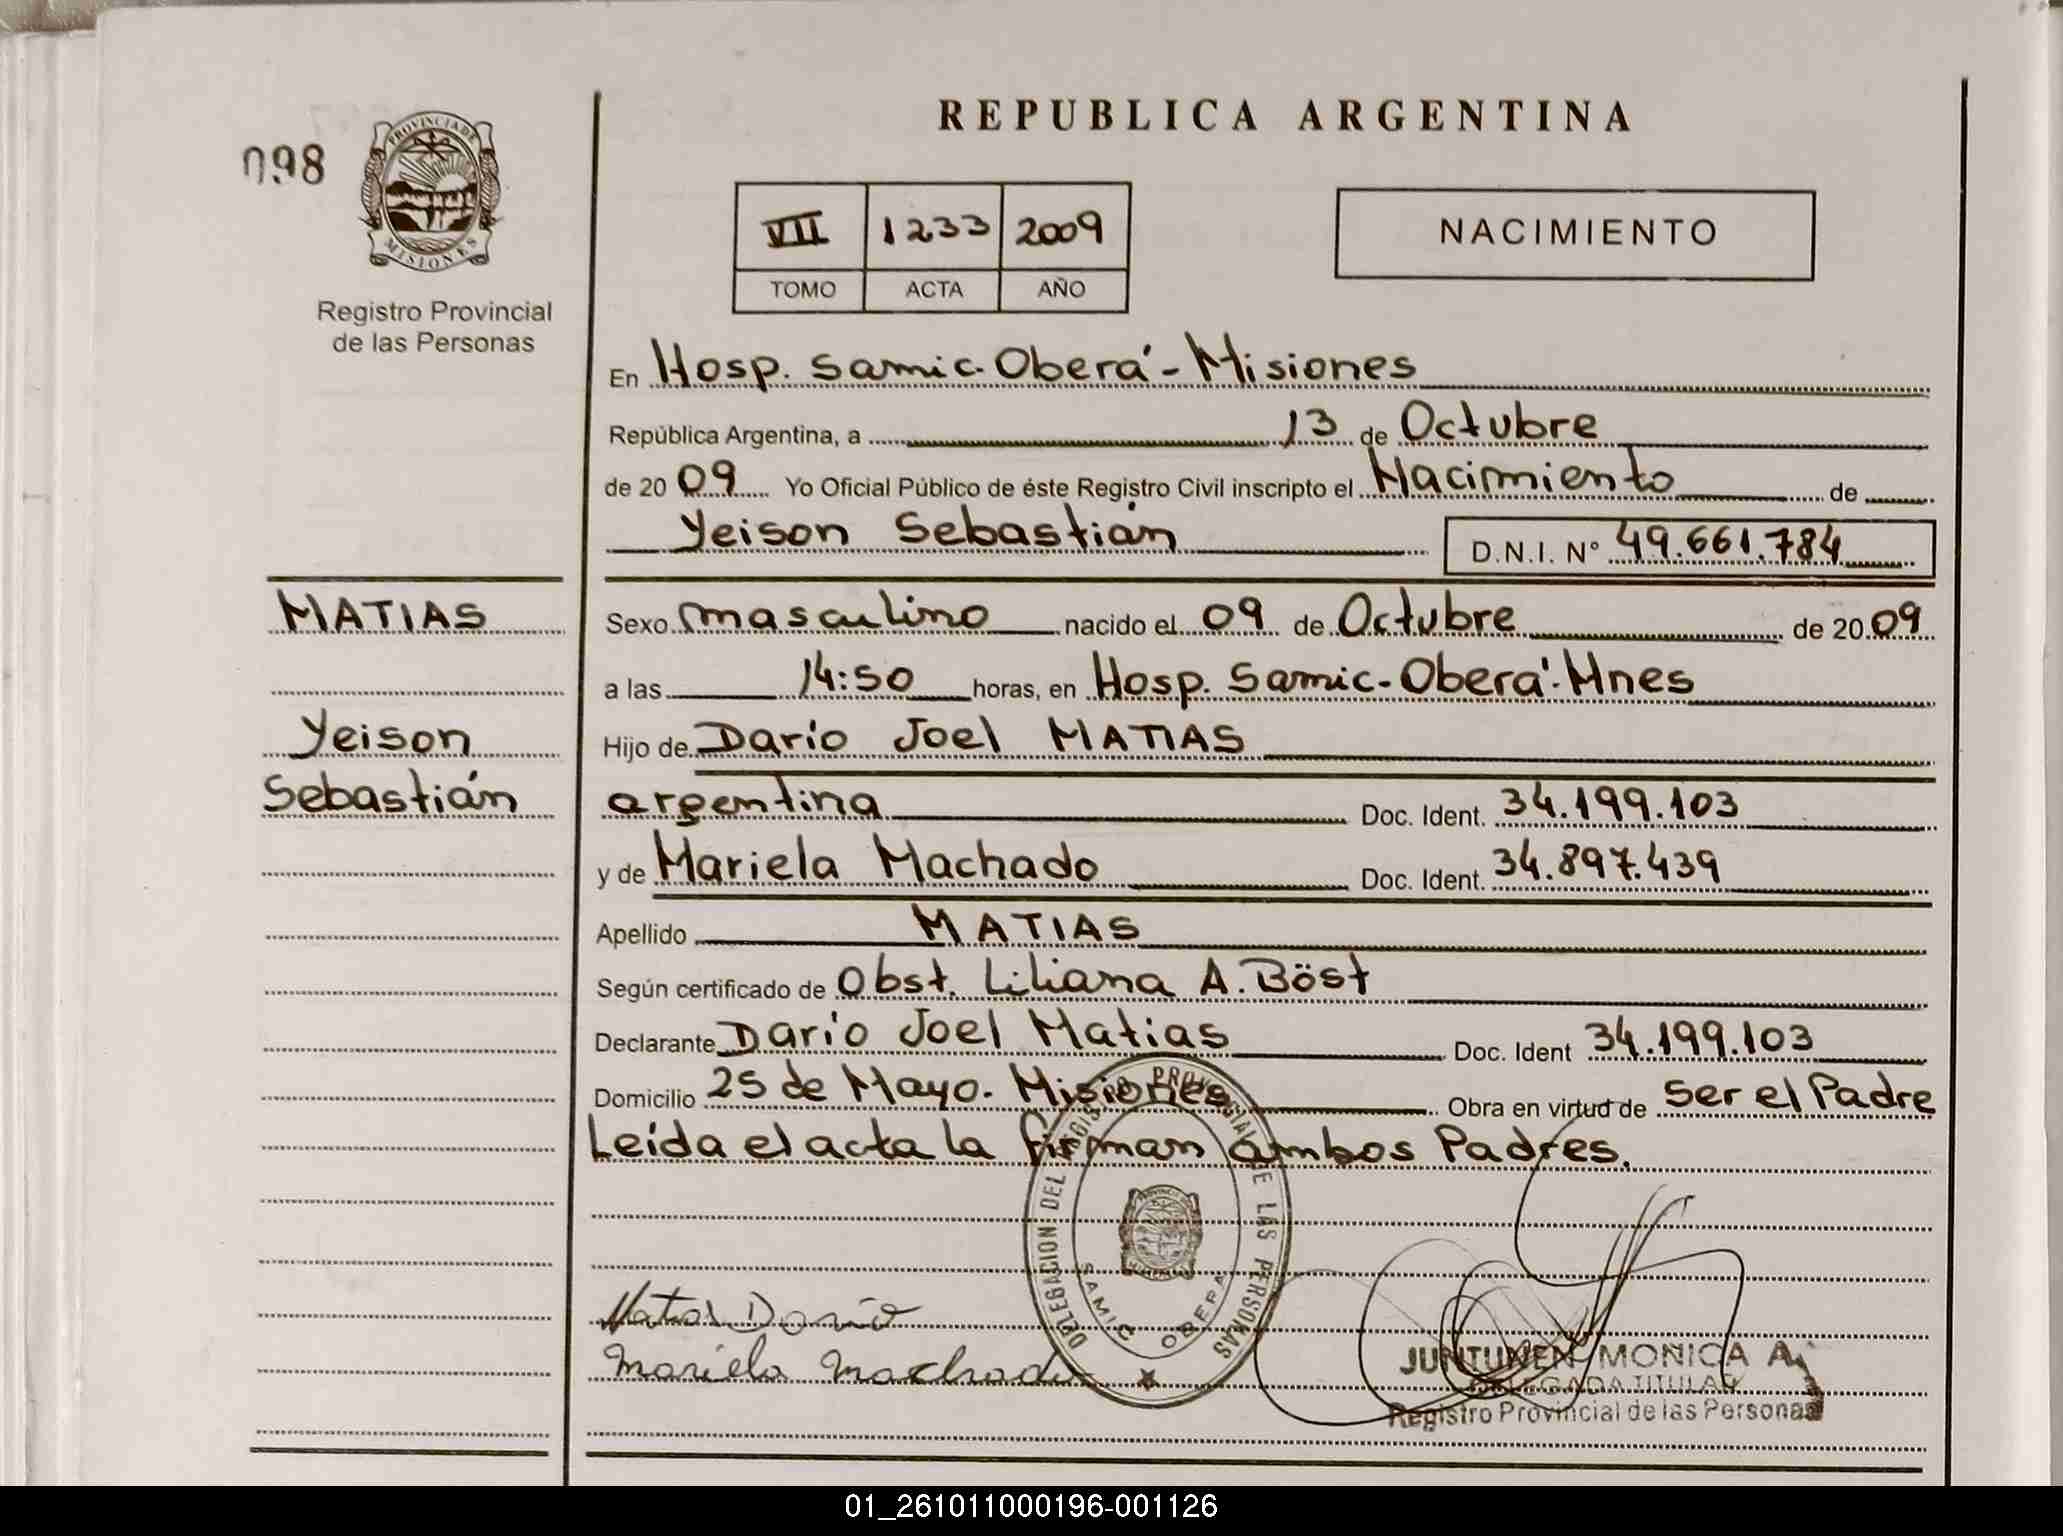 REPUBLICA ARGENTINA
098
PROVINCIA DE
MISIONES
Registro Provincial
de las Personas
VII 1233 2009
TOMO ACTA AÑO
NACIMIENTO
En Hosp. Samic. Oberá - Misiones
República Argentina, a 13 de Octubre
de 2009 Yo Oficial Público de éste Registro Civil inscripto el Nacimiento de
Yeison Sebastián D.N.I. Nº 49.661.784
MATIAS
Yeison
Sebastián
Sexo masculino nacido el 09 de Octubre de 2009
a las 14:50 horas, en Hosp. Samic - Oberá - Mnes
Hijo de Darío Joel MATIAS
argentina Doc. Ident. 34.199.103
y de Mariela Machado Doc. Ident. 34.897.439
Apellido MATIAS
Según certificado de Obst. Liliana A. Böst
Declarante Darío Joel Matias Doc. Ident 34.199.103
Domicilio 25 de Mayo. Misiones Obra en virtud de ser el Padre
Leída el acta la firman ambos Padres.
DELEGACION DEL REGISTRO PROVINCIAL DE LAS PERSONAS
SAMIC OBERA
Darío
Mariela Machado
JUNTUNEN MONICA A.
DELEGADA TITULAR
Registro Provincial de las Personas
01_261011000196-001126